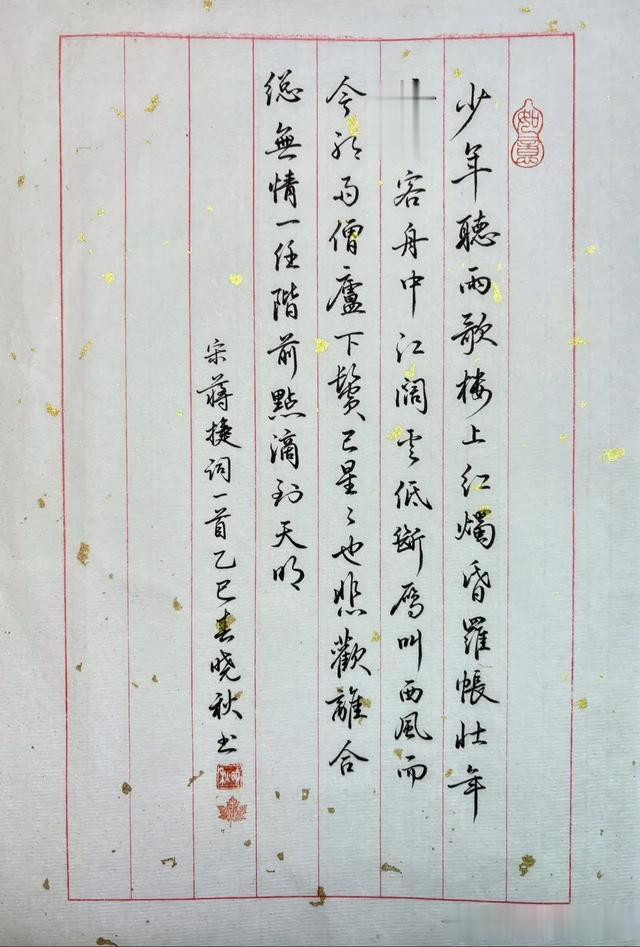 如意
少年聽雨歌樓上紅燭昏羅帳壯年
客舟中江闊雲低斷雁叫西風而
今聽雨僧廬下鬢已星〻也悲歡離合
總無情一任階前點滴到天明
宋蔣捷詞一首乙巳春曉秋書